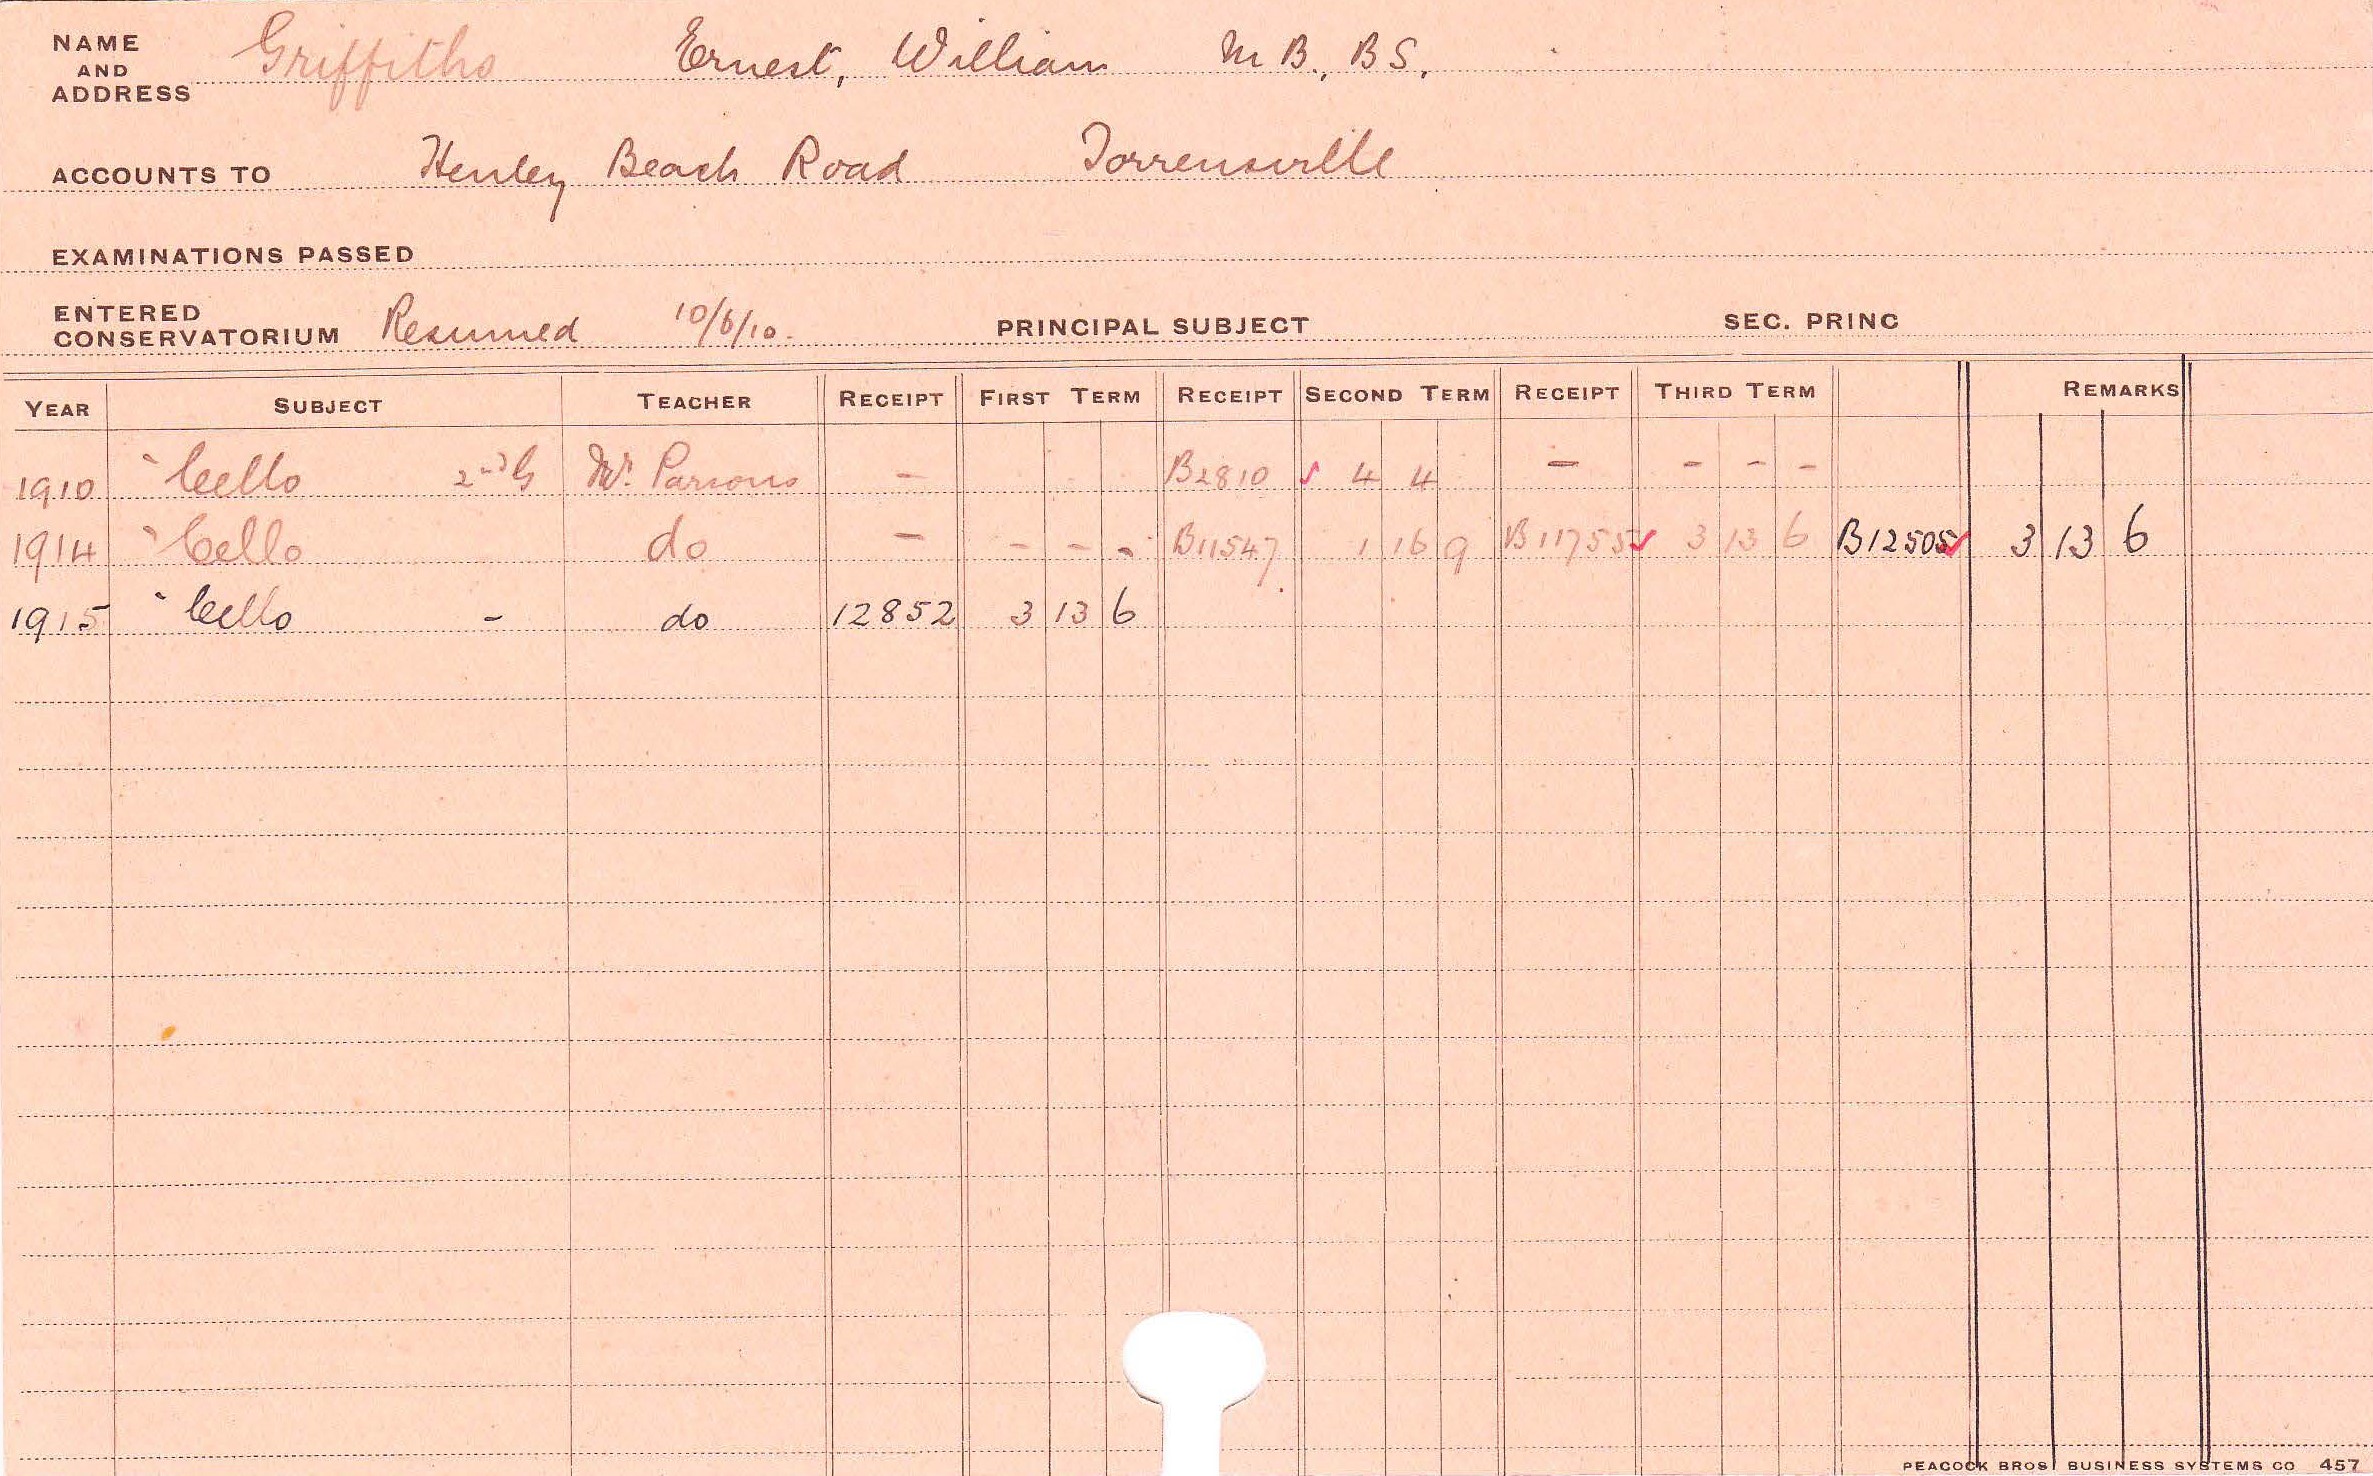 NAME AND ADDRESS Griffiths Ernest, William M B., B S.
ACCOUNTS TO Henley Beach Road Torrensville
EXAMINATIONS PASSED
ENTERED CONSERVATORIUM Resumed 10/6/10. PRINCIPAL SUBJECT SEC. PRINC
YEAR SUBJECT TEACHER RECEIPT FIRST TERM RECEIPT SECOND TERM RECEIPT THIRD TERM REMARKS
1910 'Cello 2nd G Mr. Parsons - B2810 ✓ 4 4 - - - -
1914 'Cello do - - - - B11547 1 16 9 B11755 ✓ 3 13 6 B12505 ✓ 3 13 6
1915 'Cello - do 12852 3 13 6
PEACOCK BROS BUSINESS SYSTEMS CO 457